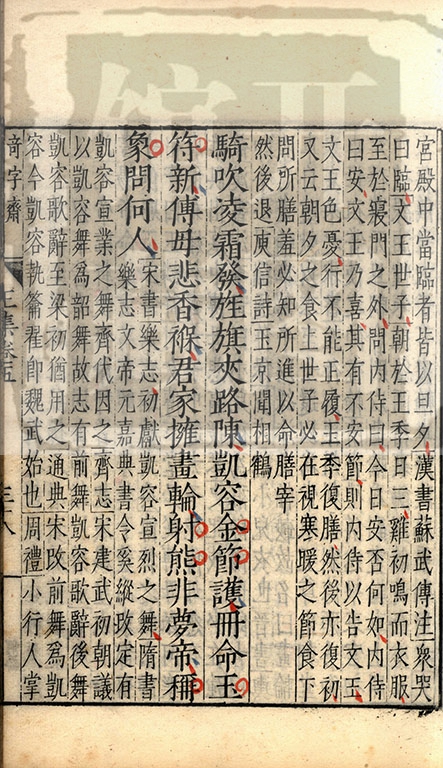 宮殿中當臨者皆以旦夕漢書蘇武傳注衆哭
曰臨文王世子朝於王季日三雞初鳴而衣服
至於寢門之外問內侍曰今日安否何如內侍
曰安文王乃喜其有不安節則內侍以告文王
文王色憂行不能正履王季復膳然後亦復初
又云朝夕之食上世子必在視寒暖之節食下
問所膳羞必知所進以命膳宰
然後退庾信詩玉京聞相鶴
騎吹凌霜發旌旗夾路陳凱容金節護冊命玉
符新傅毋悲香褓君家擁畫輪射熊非夢帝稱
象問何人
宋書樂志初獻凱容宣烈之舞隋書
樂志文帝元嘉典書令奚縱改定有
凱容宣業之舞齊代因之齊志宋建武初朝議
以凱容舞為韶舞故志有前舞凱容歌辭後舞
凱容歌辭至梁初猶用之通典宋改前舞為凱
容今凱容執籥翟即魏武始也周禮小行人掌
奇字齋
上集卷五
三八